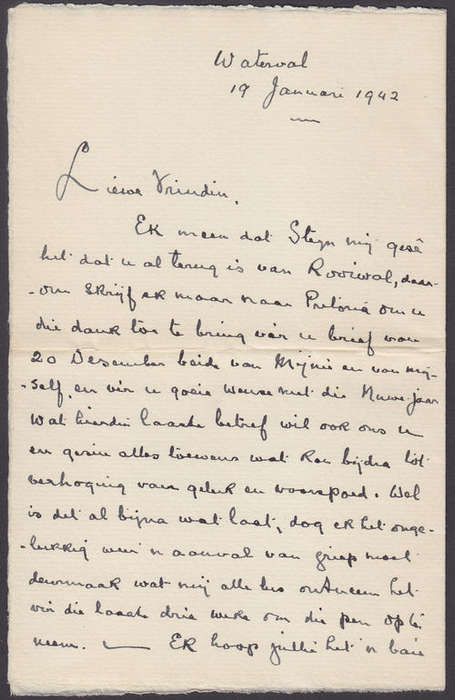 Waterval
19 Januari 1942
Liewe Vrindin,
Ek meen dat Steyn mij gesê
het dat u al terug is van Rooiwal, daar-
-om skrijf ek maar naar Pretoria om u
die dank toe te bring vir u brief van
20 Desember beide van Mijnie en van mij-
-self, en vir u goeie wense met die Nuwe-jaar
Wat hierdie laaste betref wil ook ons u
en gesin alles toewens wat kan bijdra tot
verhoging van geluk en voorspoed. Wel
is dit al bijna wat laat, dog ek het onge-
-lukkig weer 'n aanval van griep moet
deurmaak wat mij alle lus ontneem het
vir die laaste drie weke om die pen op te
neem. — Ek hoop jullie het 'n baie